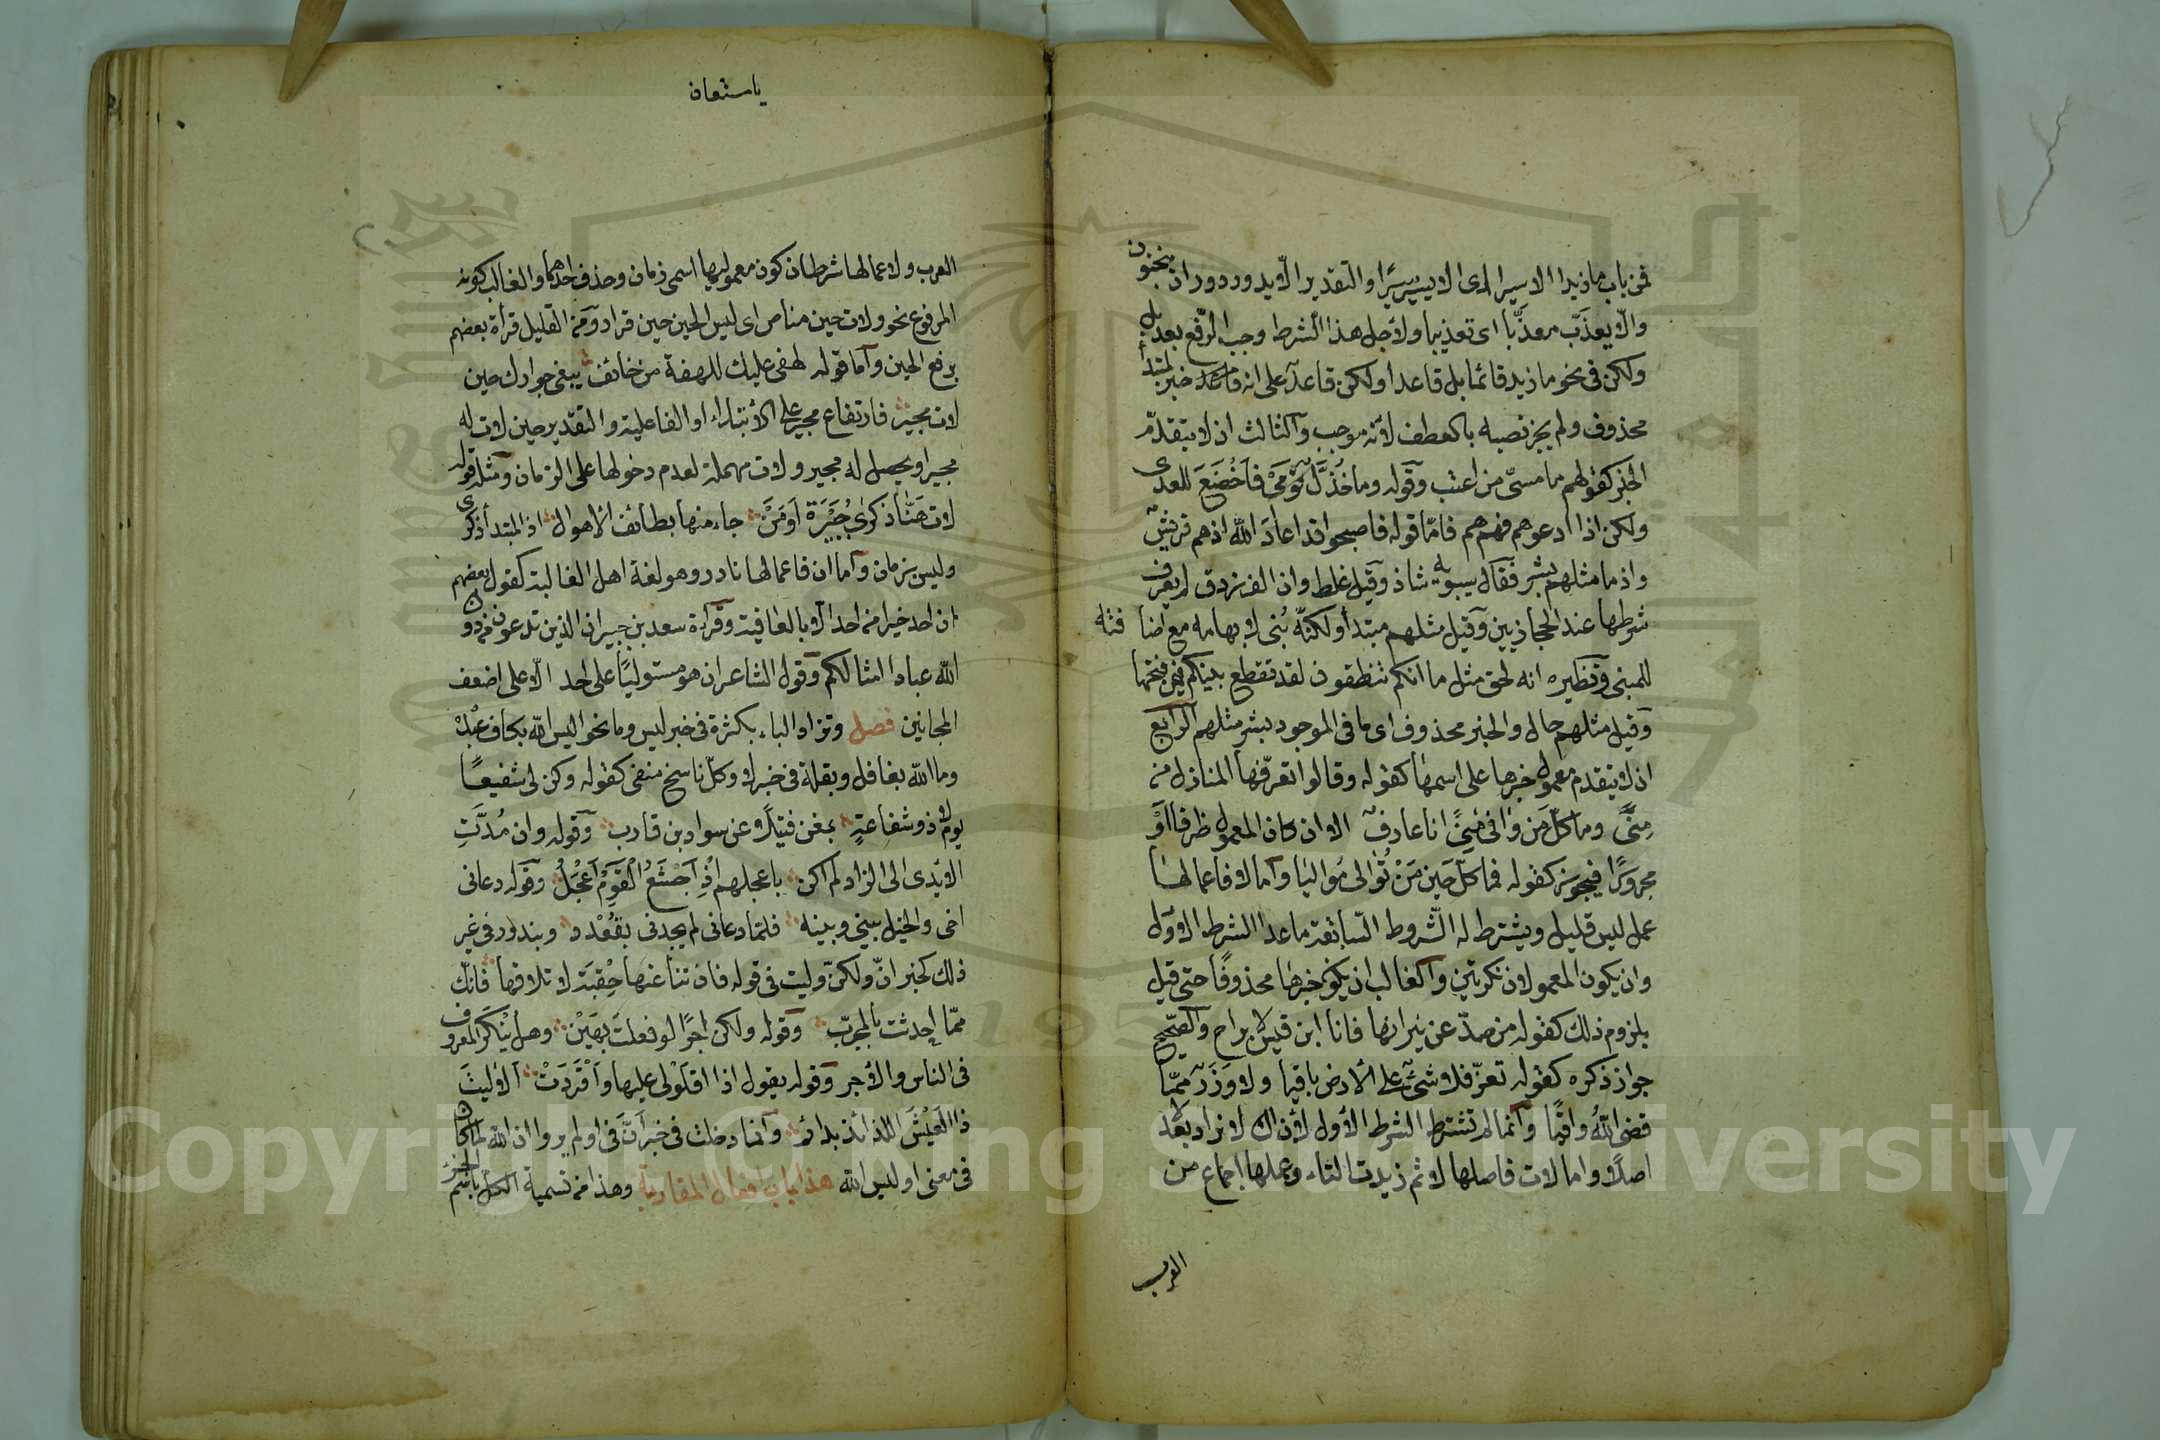 فمن باب ما زيدا الا سيرا اى الا يسير سيرا والتقدير الا يدور دوران منجنون
والا يعذب معذبا اى تعذيبا ولاجل هذا الشرط وجب الرفع بعد بل
ولكن فى نحو ما زيد قائما بل قاعد او لكن قاعد على انه خبر لمبتدأ
محذوف ولم يجز نصبه بالعطف لانه موجب والثالث ان لا يتقدم
الخبر كقولهم ما مسئ من اعتب وقوله وما خذل قومى فاخضع للعدى
ولكن اذا ادعوهم فهم هم فاما قوله فاصبحوا قد اعاد الله اذ هم قريش
واذ ما مثلهم بشر فقال سيبويه شاذ وقيل غلط وان الفرزدق لم يعرف
شرطها عند الحجازيين وقيل مثلهم مبتدأ ولكنه بنى لابهامه مع اضافته
للمبنى ونظيره انه لحق مثل ما انكم تنطقون لقد تقطع بينكم فيمن فتحهما
وقيل مثلهم حال والخبر محذوف اى ما فى الموجود بشر مثلهم الرابع
ان لا يتقدم معمول خبرها على اسمها كقوله وقالوا تعرفها المنازل من
منى وما كل من وافى منى انا عارف الا ان كان المعمول ظرفا او
مجرورا فيجوز كقوله فما كل حين من توالى مواليا واما لا فاعمالها
عمل ليس قليل ويشترط له الشروط السابقة ما عدا الشرط الاول
وان يكون المعمولان نكرتين والغالب ان يكون خبرها محذوفا حتى قيل
بلزوم ذلك كقوله من صد عن نيرانها فانا ابن قيس لا براح والصحيح
جواز ذكره كقوله تعز فلا شئ على الارض باقيا ولا وزر مما
قضى الله واقيا وانما لم تشترط الشرط الاول لان ان لا تزاد بعد لا
اصلا واما لات فاصلها لا ثم زيدت التاء وعملها اجماع من
العرب
ياستعان
العرب ولاعمالها شرطان كون معموليها اسمى زمان وحذف احدهما والغالب كونه
المرفوع نحو ولات حين مناص اى ليس الحين حين فرار ومن القليل قرأة بعضهم
برفع الحين واما قوله لهفى عليك للهفة من خائف يبغى جوارك حين
لات مجير فارتفاع مجير على الابتداء او الفاعلية والتقدير حين لات له
مجير او يحصل له مجير ولات مهملة لعدم دخولها على الزمان ومثله قوله
لات هنا ذكرى جبيرة او من جاء منها بطائف الاهوال اذ المبتدأ ذكرى
وليس بزمان واما ان فاعمالها نادر وهو لغة اهل العالية كقول بعضهم
ان احد خيرا من احد الا بالعافية وقرأة سعد بن جبير ان الذين تدعون من دون
الله عبادا امثالكم وقول الشاعر ان هو مستوليا على احد الا على اضعف
المجانين فصل وتزاد الباء بكثرة فى خبر ليس وما نحو اليس الله بكاف عبده
وما الله بغافل وبقلة فى خبر لا وكل ناسخ منفى كقوله وكن لى شفيعا
يوم لا ذو شفاعة بمغن فتيلا عن سواد بن قارب وقوله وان مدت
الايدى الى الزاد لم اكن باعجلهم اذ اجشع القوم اعجل وقوله دعانى
اخى والخيل بينى وبينه فلما دعانى لم يجدنى بقعدد وبندور فى غير
ذلك كخبر ان ولكن وليت فى قوله فان تنأ عنها حقبة لا تلاقها فانك
مما احدثت بالمجرب وقوله ولكن اجرا لو فعلت بهين وهل ينكر المعروف
فى الناس والاجر وقوله يقول اذا اقلولى عليها واقردت الا ليت
ذا العيش اللذائذ بدائم وانما دخلت فى خبر ان فى اولم يروا ان الله لما كان
فى معنى اوليس الله هذا باب افعال المقاربة وهذا من تسمية الكل باسم الجزء
Copyright © King Saud University